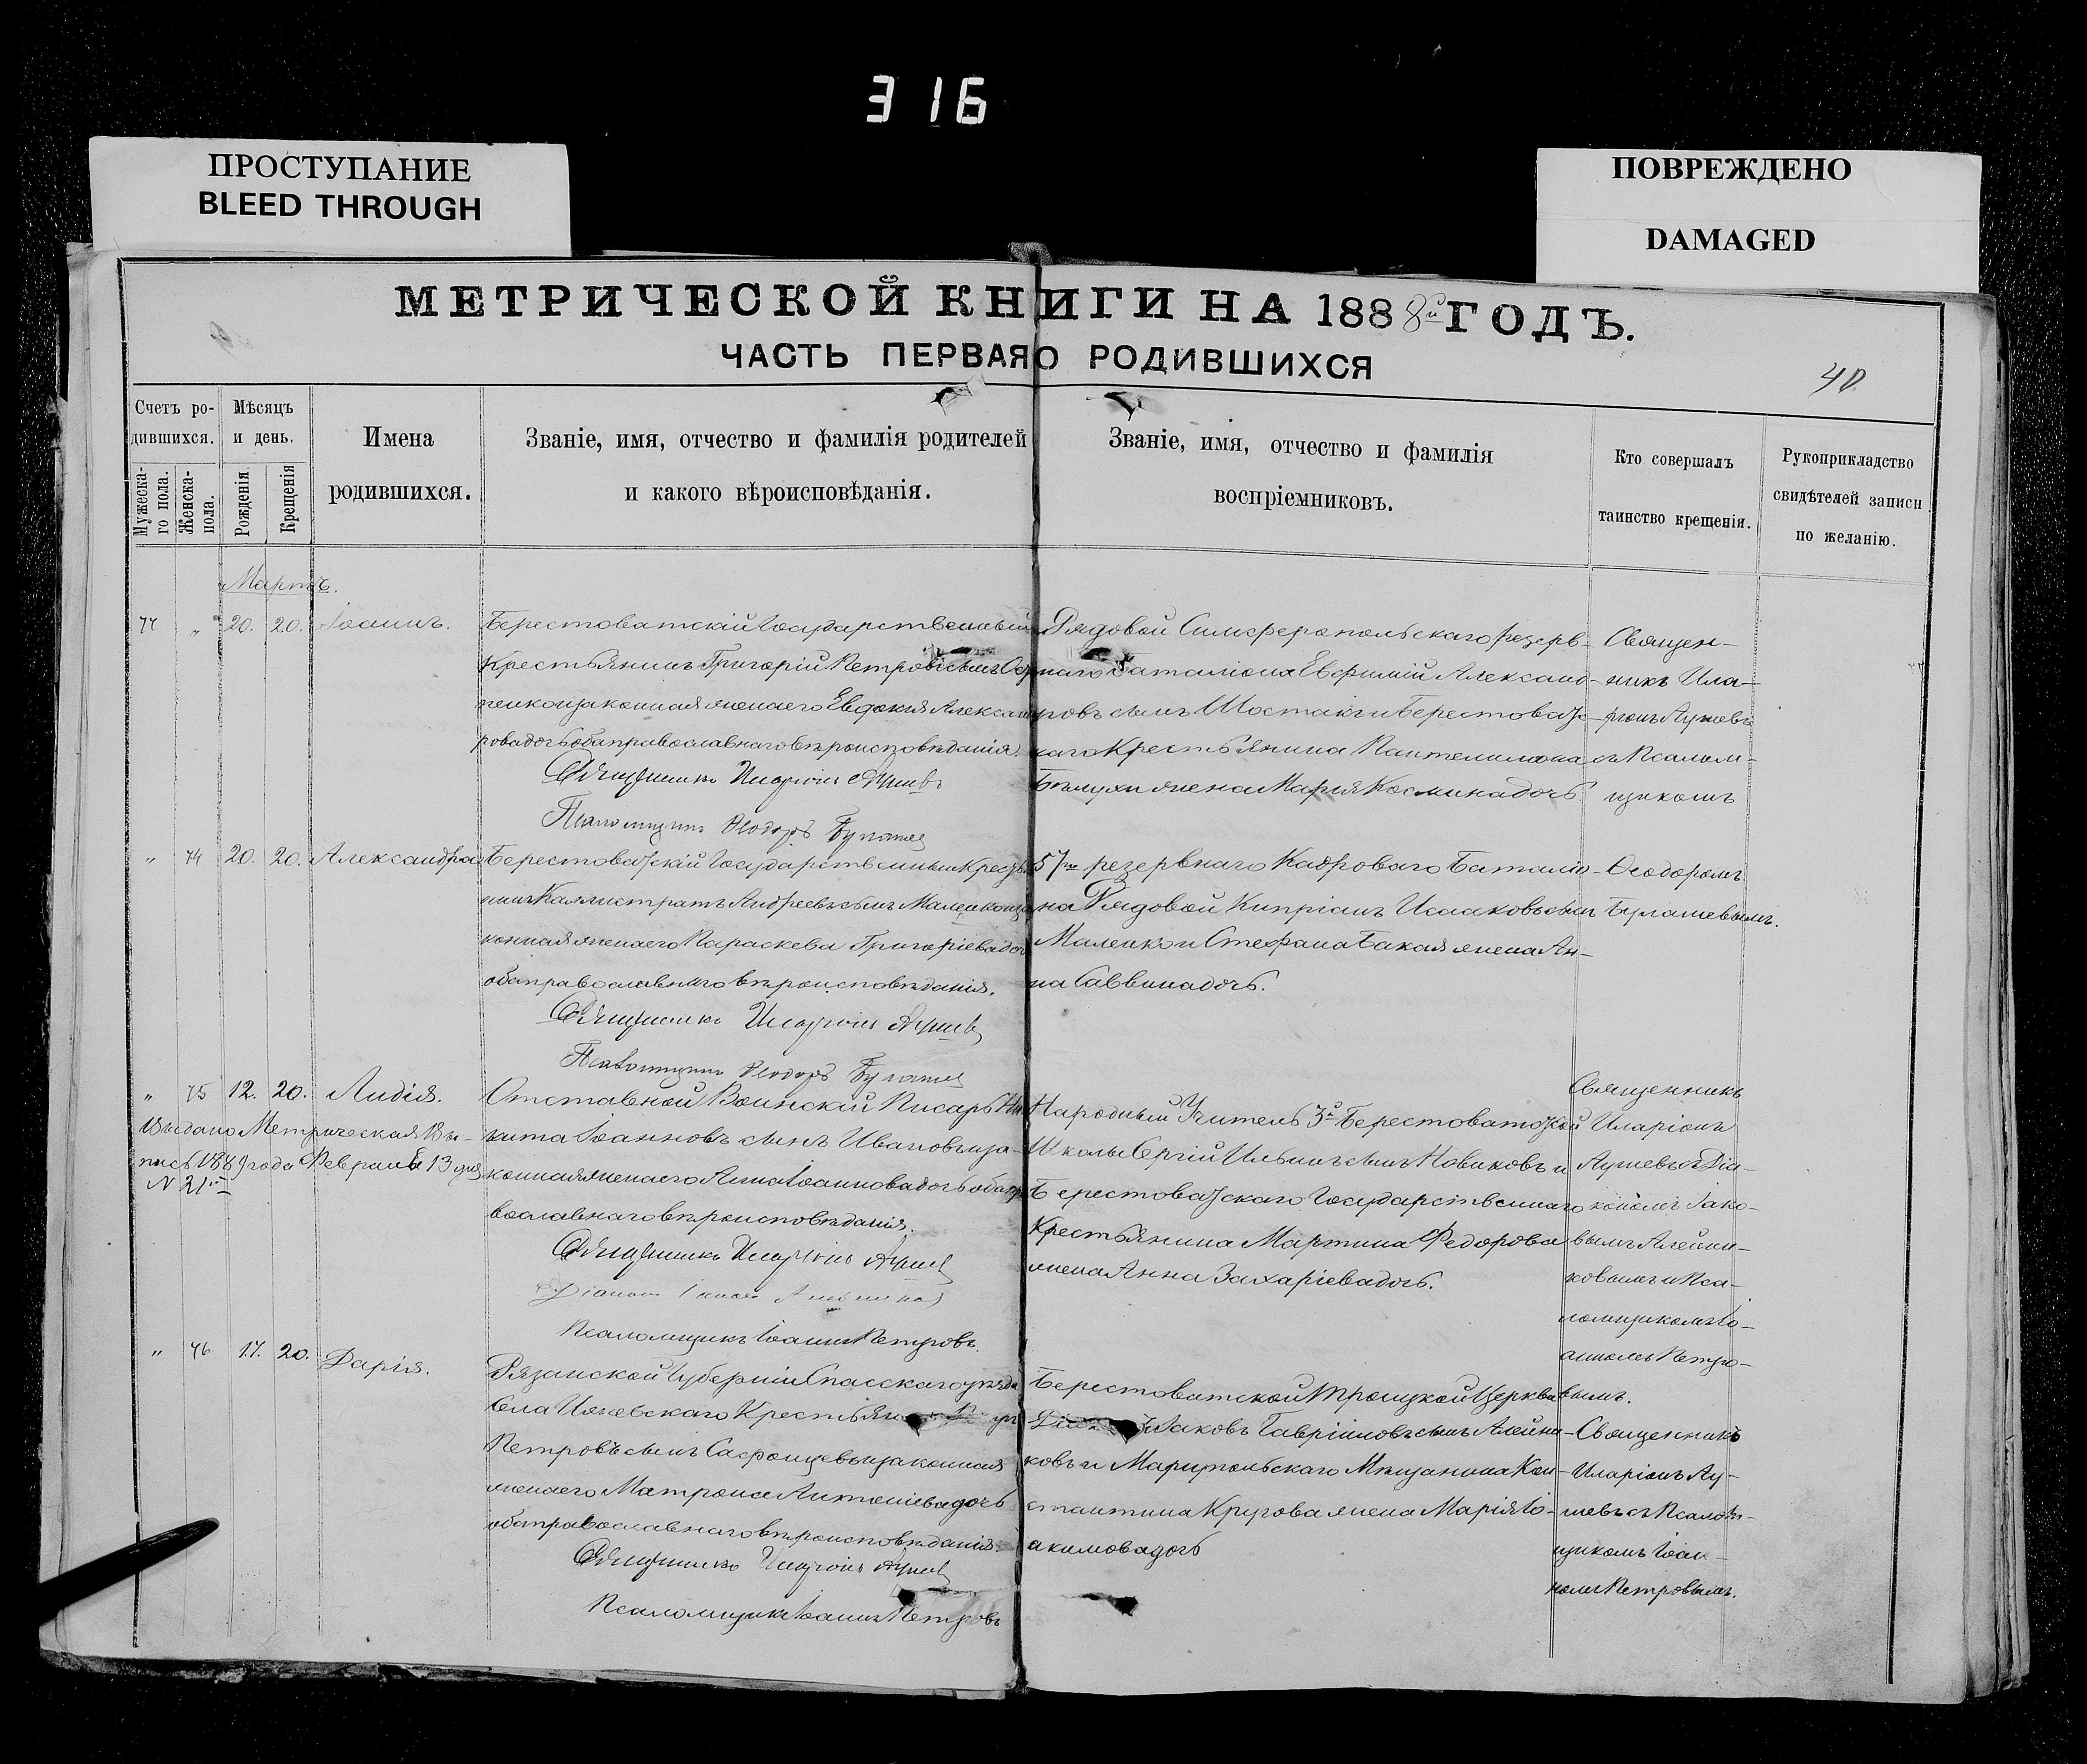 316
ПРОСТУПАНИЕ
BLEED THROUGH
ПОВРЕЖДЕНО
DAMAGED
МЕТРИЧЕСКОЙ КНИГИ НА 1888й ГОДЪ.
ЧАСТЬ ПЕРВАЯ О РОДИВШИХСЯ
40
Счетъ ро-
дившихся.
Мужеска-
го пола.
Женска-
пола.
Мѣсяцъ
и день.
Рожденія
Крещенія
Имена
родившихся.
Званіе, имя, отчество и фамилія родителей
и какого вѣроисповѣданія.
Званіе, имя, отчество и фамилія
воспріемниковъ.
Кто совершалъ
таинство крещенія.
Рукоприкладство
свидѣтелей записи
по желанію.
Мартъ.
" 20. 20. Іоаннъ.
Берестоватскій Государственный
Крестьянинъ Григорій Петровъ сынъ
законная жена его Евдокія Александ
рова дочь оба православнаго вѣроисповѣданія.
Священникъ Иларіонъ
Псаломщикъ Ѳеодоръ
Рядовой Симферопольскаго резерв-
наго баталіона Евфимій Александ-
ровъ сынъ Шостакъ и Берестоватс-
каго Крестьянина Пантелимона
Бѣлухи жена Марія Космина дочь.
Священ-
никъ Ила-
ріонъ
съ Псалом-
щикомъ
" 74 20. 20. Александра
Берестоватскій Государственный Крестья
нинъ Каллистратъ Андреевъ сынъ Маленко и за
конная жена его Параскева Григоріева дочь
оба православнаго вѣроисповѣданія.
Священникъ Иларіонъ
Псаломщикъ Ѳеодоръ
57го резервнаго Кадроваго Баталіо-
на Рядовой Кипріанъ Исааковъ сынъ
Маленко и Стефана Бакая жена Ан-
на Саввина дочь.
Ѳеодоромъ
" 75 12. 20. Лидія.
Выдана Метрическая Вы-
пись 1889 года Февраля 13 дня
N 21
Отставной Воинскій Писарь Ни
кита Іоанновъ сынъ Ивановъ и за-
конная жена его Анна Іоаннова дочь оба пра
вославнаго вѣроисповѣданія.
Священникъ Иларіонъ
Діаконъ Іаковъ
Псаломщикъ Іоаннъ Петровъ.
Народный Учитель 3й Берестоватской
Школы Сергій Ильинъ сынъ Новиковъ и
Берестоватскаго Государственнаго
Крестьянина Мартина Федорова
жена Анна Захаріева дочь.
Священникъ
Иларіонъ
съ Діа-
кономъ Іако-
вымъ Алейни-
ковымъ и Пса-
ломщикомъ Іо-
анномъ Петро-
вымъ.
" 76 17. 20. Дарія.
Рязанской Губерніи Спасскаго уѣзда
Села Ижевскаго
Петровъ сынъ и законная
жена его Матрона Антоніева дочь
оба православнаго вѣроисповѣданія.
Священникъ Иларіонъ
Псаломщикъ Іоаннъ Петровъ
Берестоватской Троицкой Церкви
Іаковъ Гавріиловъ сынъ Алейни-
ковъ и Маріупольскаго Мѣщанина Кон-
стантина Кругова жена Марія Іо-
акимова дочь
Священникъ
Иларіонъ
съ Псалом-
щикомъ Іоан-
номъ Петровымъ.